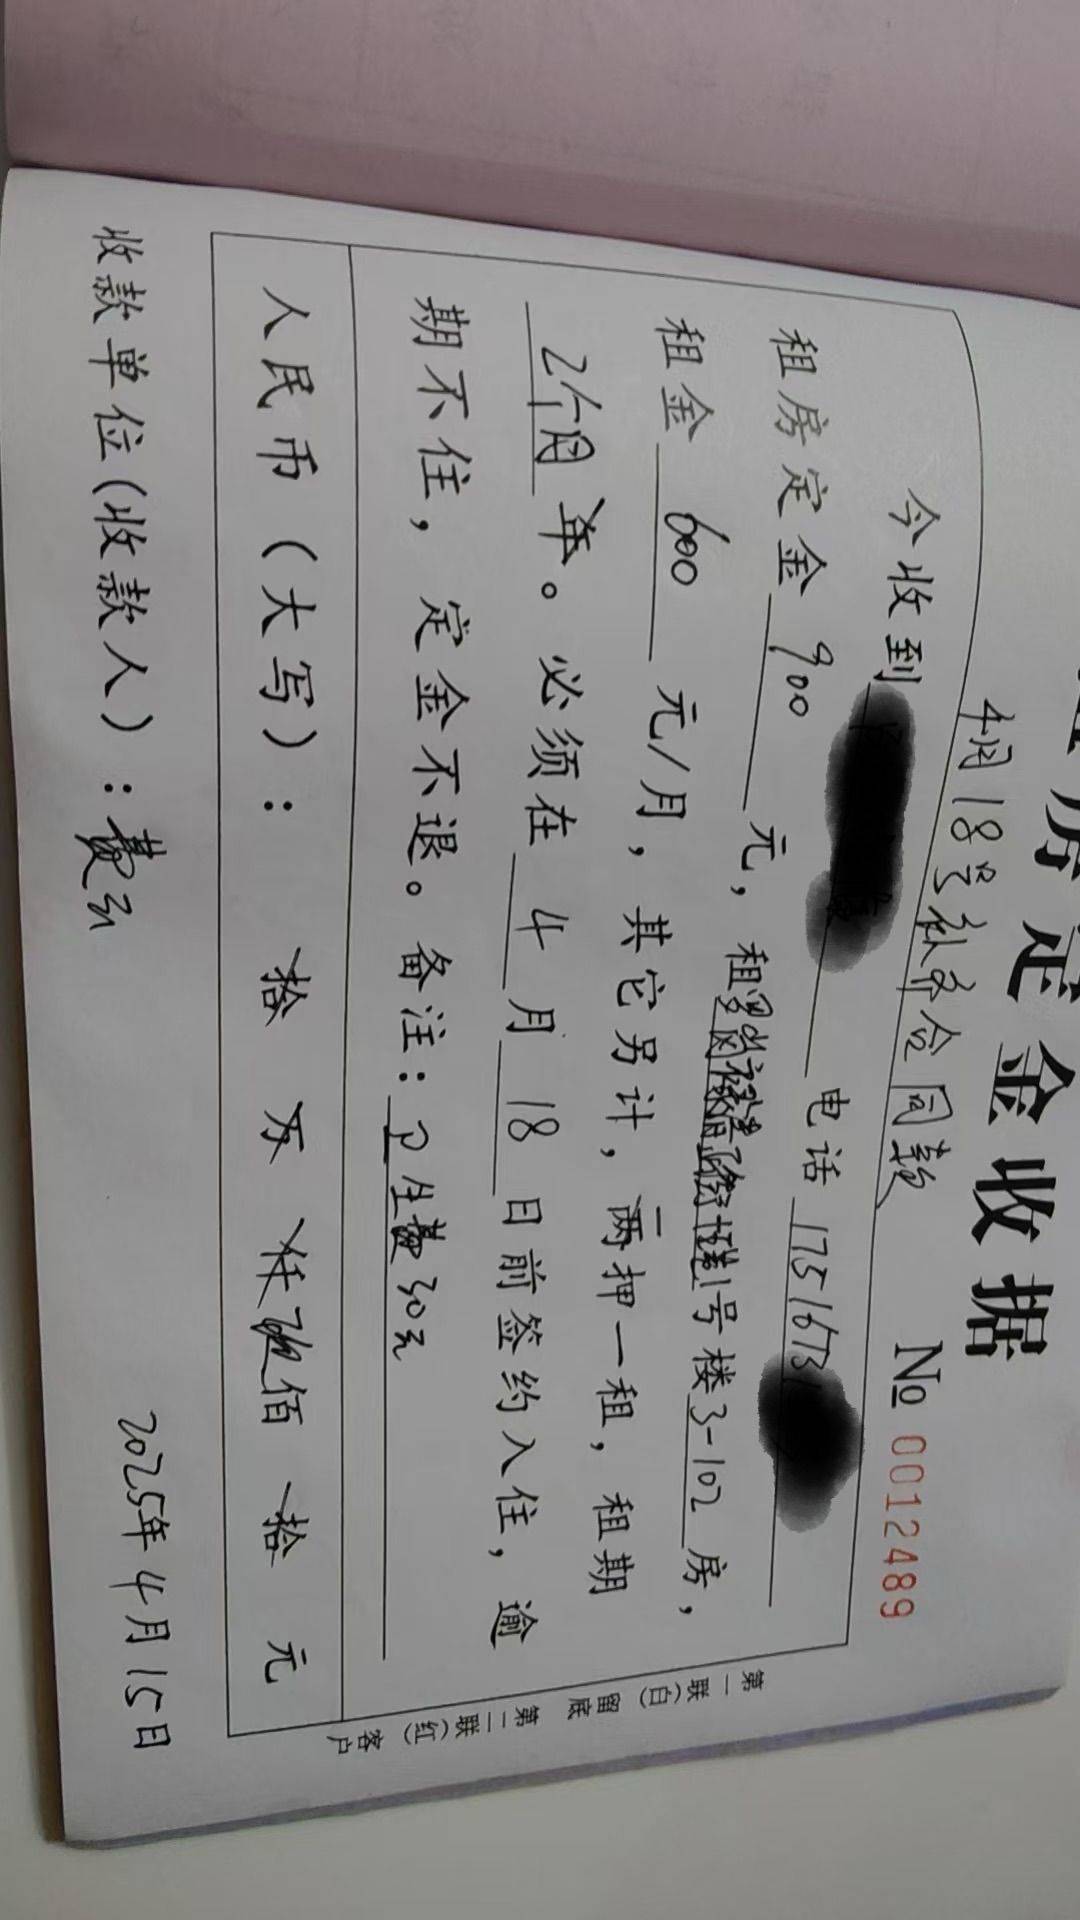 房定金收据
4月18号补齐合同款
№ 0012489
今收到 电话 1751673
租房定金 900 元，租 1号楼3-102房，
租金 600 元/月，其它另计，两押一租，租期
2个月 年。必须在 4 月 18 日前签约入住，逾
期不住，定金不退。备注：卫生费30元
人民币（大写）： 拾 万 仟 玖佰 拾 元
收款单位(收款人)： 2025年4月15日
第一联(白)留底 第二联(红)客户